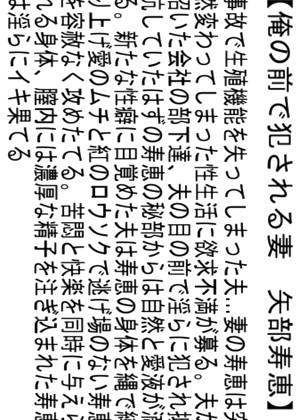 【俺の前で犯される妻　矢部寿恵】
事故で生殖機能を失ってしまった夫…妻の寿恵は突
然変わってしまった性生活に欲求不満が募る。夫が
招いた会社の部下達、夫の目の前で淫らに犯され抵
抗していたはずの寿恵の秘部からは自然と愛液が溢
る。新たな性癖に目覚めた夫は寿恵の身体を縄で縛
り上げ愛のムチと紅のロウソクで逃げ場のない寿恵
を容赦なく攻めたてる。苦悶と快楽を同時に与えら
れる身体、膣内には濃厚な精子を注ぎ込まれた寿恵
は淫らにイキ果てる